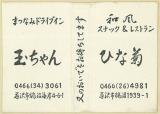 まつなみドライブイン
玉ちゃん
0466(34)3061
又のおいでをお待ちしてます
和風
スナック&レストラン
ひな菊
0466(26)4981
藤沢市鵠沼1939-1